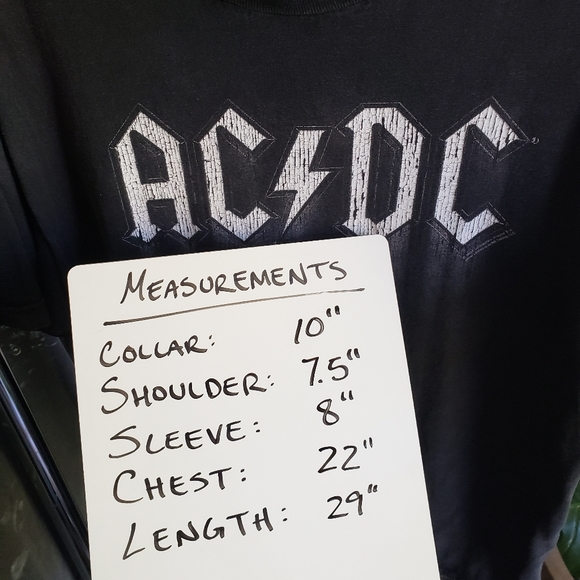 AC⚡DC
MEASUREMENTS
COLLAR: 10"
SHOULDER: 7.5"
SLEEVE: 8"
CHEST: 22"
LENGTH: 29"